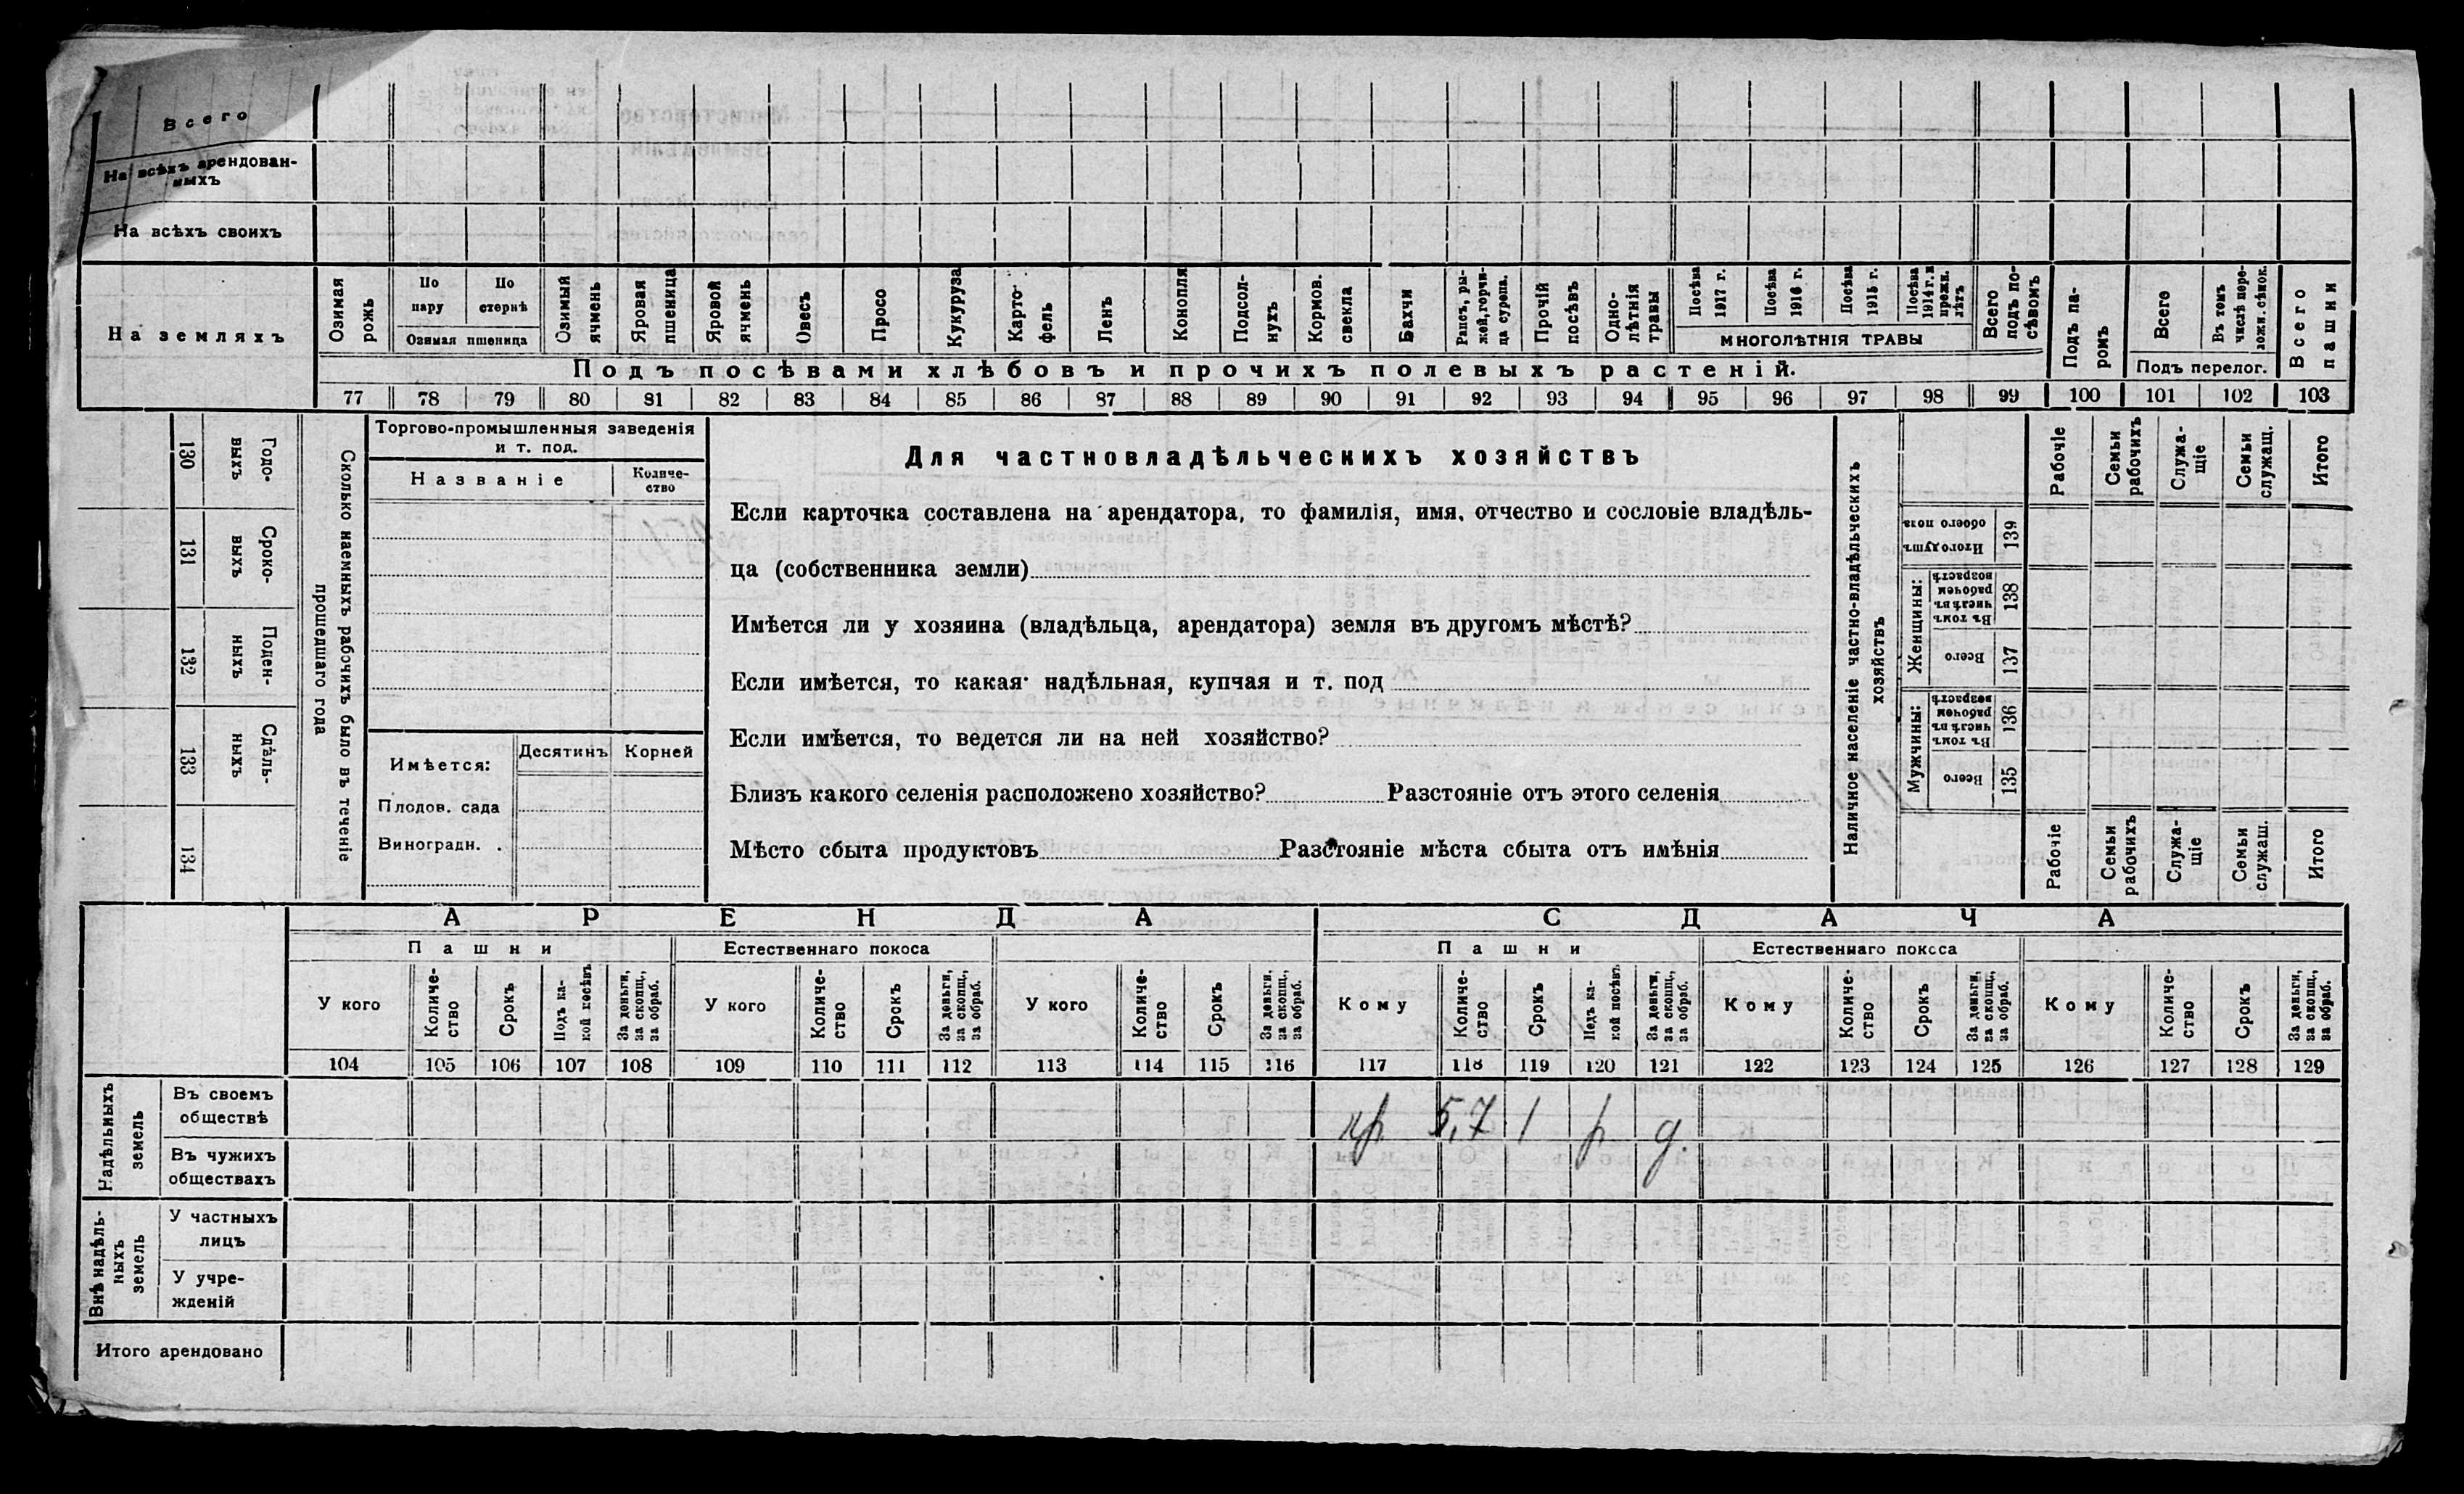 Всего
На всѣхъ арендован-
ныхъ
На всѣхъ своихъ
На земляхъ
Озимая рожь
По пару
По стернѣ
Озимая пшеница
Озимый ячмень
Яровая пшеница
Яровой ячмень
Овесъ
Просо
Кукуруза
Карто-
фель
Ленъ
Конопля
Подсол-
нухъ
Кормов. свекла
Бахчи
Рапсъ, ры-
жей, горчи-
ца сурепа.
Прочій посѣвъ
Одно-
лѣтнія травы
Посѣва 1917 г.
Посѣва 1916 г.
Посѣва 1915 г.
Посѣва 1914 г. и прежн. лѣтъ
МНОГОЛѢТНІЯ ТРАВЫ
Всего подъ по-
сѣвомъ
Подъ па-
ромъ
Всего
Въ томъ числѣ пере-
ложн. сѣнок.
Подъ перелог.
Всего пашни
Подъ посѣвами хлѣбовъ и прочихъ полевыхъ растеній.
77 78 79 80 81 82 83 84 85 86 87 88 89 90 91 92 93 94 95 96 97 98 99 100 101 102 103
130 Годо-
выхъ
131 Сроко-
выхъ
132 Поден-
ныхъ
133 Сдѣль-
ныхъ
134
Сколько наемныхъ рабочихъ было въ теченіе
прошедшаго года
Торгово-промышленныя заведенія
и т. под.
Названіе
Количе-
ство
Имѣется:
Десятинъ Корней
Плодов. сада
Виноградн. .
Для частновладѣльческихъ хозяйствъ
Если карточка составлена на арендатора, то фамилія, имя, отчество и сословіе владѣль-
ца (собственника земли)
Имѣется ли у хозяина (владѣльца, арендатора) земля въ другомъ мѣстѣ?
Если имѣется, то какая· надѣльная, купчая и т. под
Если имѣется, то ведется ли на ней хозяйство?
Близъ какого селенія расположено хозяйство? Разстояніе отъ этого селенія
Мѣсто сбыта продуктовъ Разстояніе мѣста сбыта отъ имѣнія
Наличное населеніе частно-владѣльческихъ
хозяйствъ
Рабочіе
Семьи рабочихъ
Служа-
щіе
Семьи служащ.
Итого
Итого душъ обоего пола 139
Женщины:
Въ томъ числѣ въ рабочем возрастѣ 138
Всего 137
Мужчины:
Въ томъ числѣ въ рабочем возрастѣ 136
Всего 135
Рабочіе
Семьи рабочихъ
Служа-
щіе
Семьи служаш.
Итого
АРЕНДА
СДАЧА
Пашни
Естественнаго покоса
Пашни
Естественнаго покоса
У кого
Количе-
ство
Срокъ
Подъ ка-
кой посѣвъ
За деньги, за скопщ., за обраб.
У кого
Количе-
ство
Срокъ
За деньги, за скопщ., за обраб.
У кого
Количе-
ство
Срокъ
За деньги, за скопщ., за обраб.
Кому
Количе-
ство
Срокъ
Подъ ка-
кой посѣвъ
За деньги, за скопщ., за обраб.
Кому
Количе-
ство
Срокъ
За деньги, за скопщ., за обраб.
Кому
Количе-
ство
Срокъ
За деньги, за скопщ., за обраб.
104 105 106 107 108 109 110 111 112 113 114 115 116 117 118 119 120 121 122 123 124 125 126 127 128 129
Надѣльныхъ
земель
Въ своемъ
обществѣ
кр 5,7 1 р д.
Въ чужихъ
обществахъ
Внѣ надѣль-
ныхъ
земель
У частныхъ
лицъ
У учре-
жденій
Итого арендовано